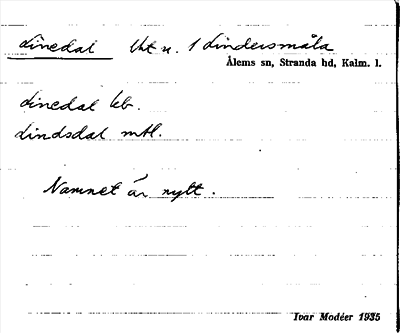 Linedal Utt u. 1 Lindersmåla
Ålems sn, Stranda hd, Kalm. l.
Linedal kb.
Lindsdal mtl.
Namnet är nytt.
Ivar Modéer 1935